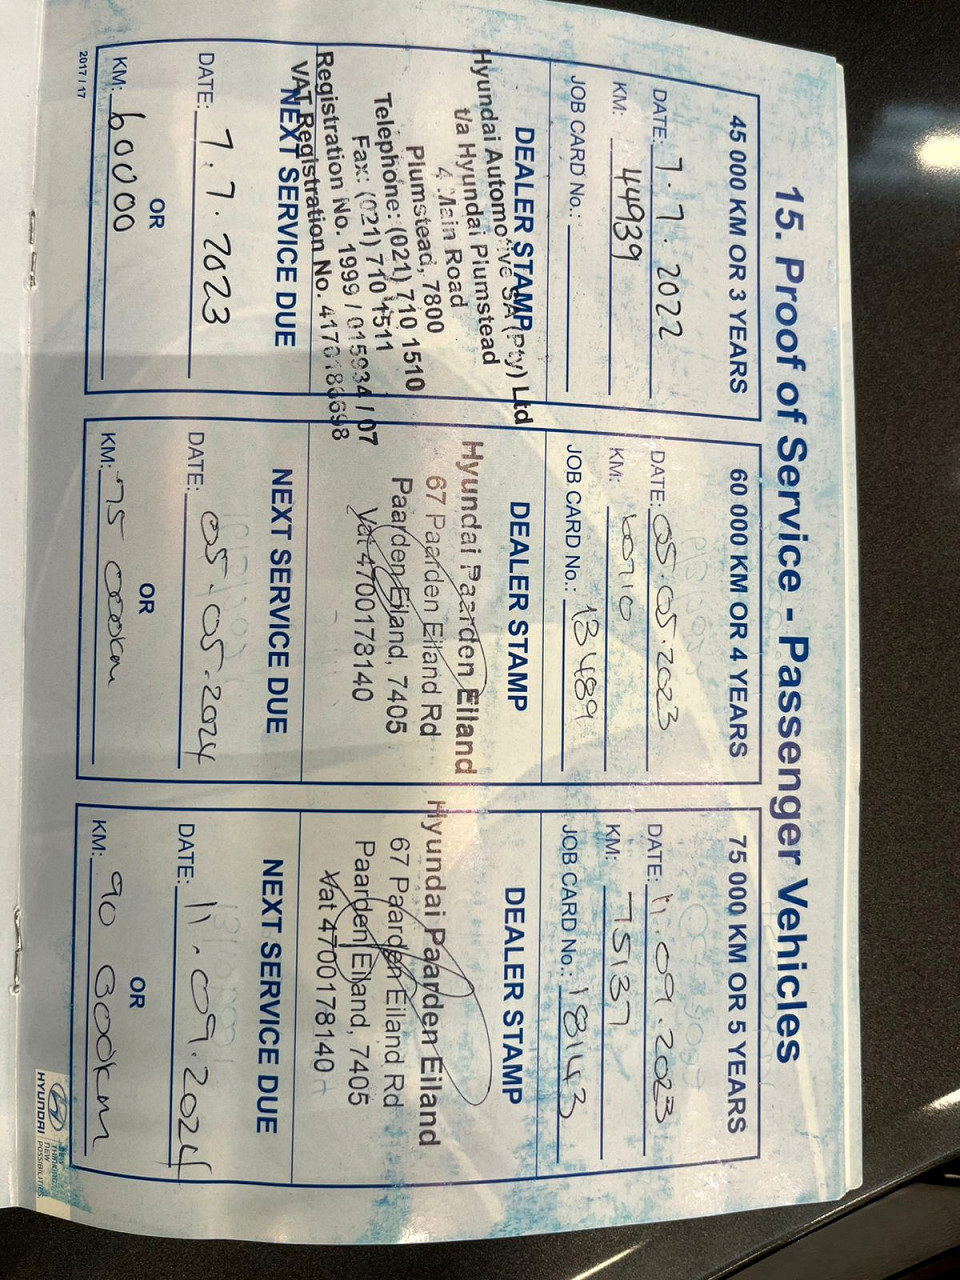 15. Proof of Service - Passenger Vehicles
45 000 KM OR 3 YEARS
DATE: 7.7.2022
KM: 44939
JOB CARD No.:
DEALER STAMP
Hyundai Automotive SA (Pty) Ltd
t/a Hyundai Plumstead
4 Main Road
Plumstead, 7800
Telephone: (021) 710 1510
Fax: (021) 710 1511
Registration No. 1999 / 015934 / 07
VAT Registration No. 4170183698
NEXT SERVICE DUE
DATE: 7.7.2023
OR
KM: 60000
2017 / 17
60 000 KM OR 4 YEARS
DATE: 05.05.2023
KM: 60710
JOB CARD No.: 13489
DEALER STAMP
Hyundai Paarden Eiland
67 Paarden Eiland Rd
Paarden Eiland, 7405
Vat 4700178140
NEXT SERVICE DUE
DATE: 05.05.2024
OR
KM: 75 000km
75 000 KM OR 5 YEARS
DATE: 11.09.2023
KM: 75137
JOB CARD No.: 18143
DEALER STAMP
Hyundai Paarden Eiland
67 Paarden Eiland Rd
Paarden Eiland, 7405
Vat 4700178140
NEXT SERVICE DUE
DATE: 11.09.2024
OR
KM: 90 000km
HYUNDAI
NEW
THINKING.
NEW
POSSIBILITIES.